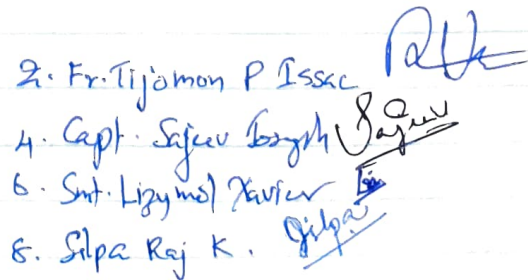 2. Fr. Tijomon P Issac
4. Capt. Sajeev Joseph Sajeev
6. Smt. Lizymol Xavier
8. Silpa Raj K. Silpa